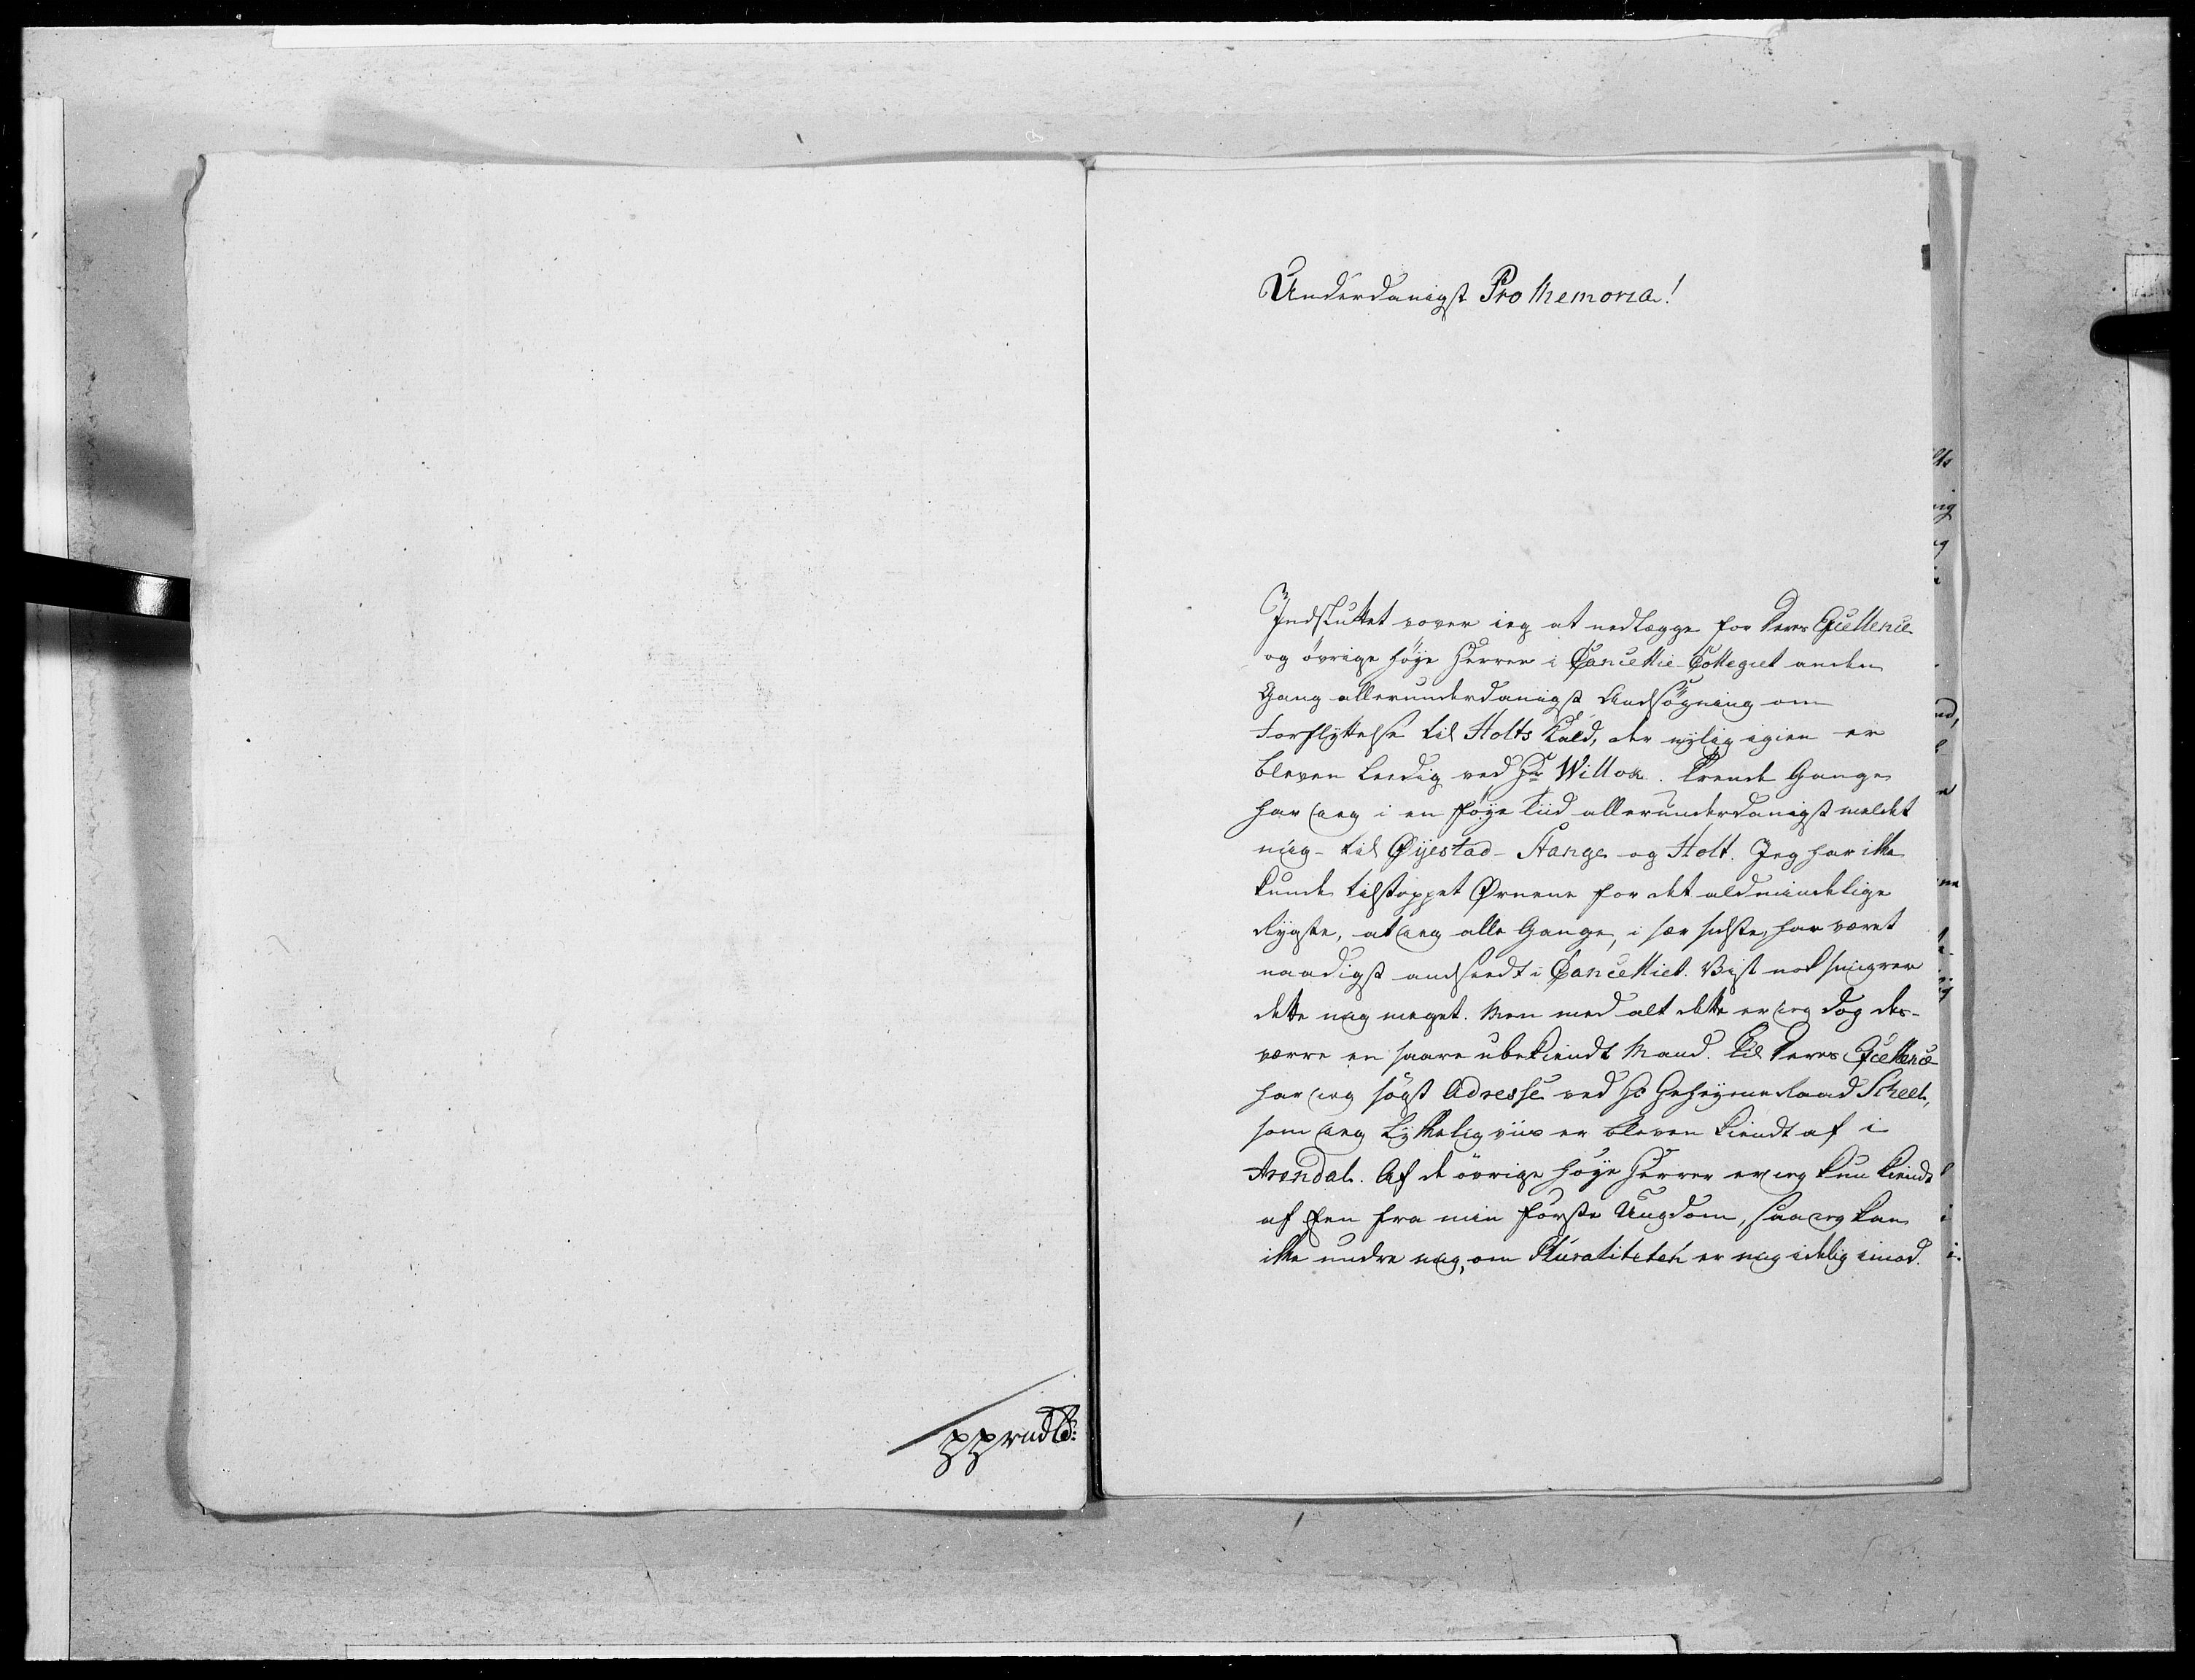 Underdanigst Pro Memoria!
Indsluttet vover ieg at nedlægge for Deres Excellence
og övrige höye Herrer i Cancellie-Collegiet anden
Gang allerunderdanigst Ansögning om
Forflyttelse til Holts Kald, der nylig igien er
bleven leedig ved Hr Willoch. Trende Gange
har ieg i en föye Tiid allerunderdanigst meldet
mig - til Øyestad - Stange og Holt. Jeg har ikke
kunde tilstoppet Ørnene for det aldmindelige
Rygte, at ieg alle Gange, i sær sidste, har været
naadigst anseedt i Cancelliet. Vist nok smigrer
dette mig meget. Men med alt dette er ieg dog des-
værre en saare ubekiendt Mand. Til Deres Excellence
har ieg sögt Adresse ved Hr Geheyme Raad Scheel,
som ieg lykkelig viis er bleven kiendt af i
Arendal. Af de övrige höye Herrer er ieg kun kiendt
af Een fra min förste Ungdom, saa ieg kan
ikke undre mig, om Pluraliteten er mig idelig imod.